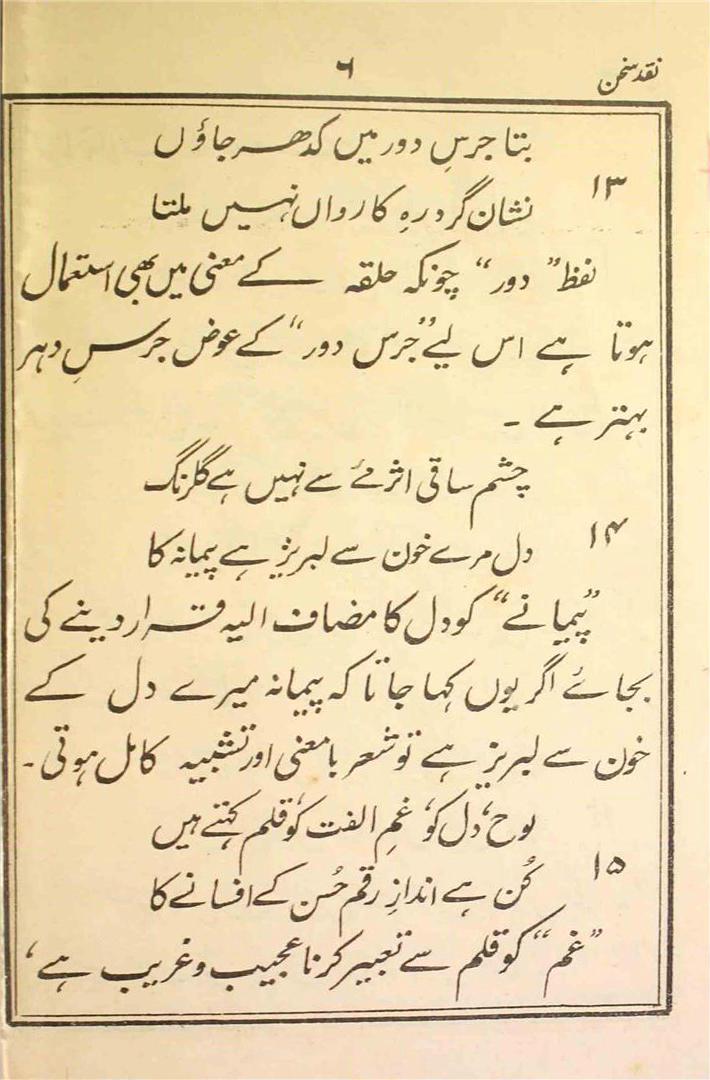 نقد سخن
۶
بتا جرسِ دور میں کدھر جاؤں
۱۳
نشان گردِ رہِ کارواں نہیں ملتا
لفظ ”دور“ چونکہ حلقہ کے معنی میں بھی استعمال
ہوتا ہے اس لیے ”جرس دور“ کے عوض جرسِ دہر
بہتر ہے ۔
چشم ساقی اثرِ مے سے نہیں ہے گلرنگ
۱۴
دل مرے خون سے لبریز ہے پیمانہ کا
”پیمانے“ کو دل کا مضاف الیہ قرار دینے کی
بجائے اگر یوں کہا جاتا کہ پیمانہ میرے دل کے
خون سے لبریز ہے تو شعر بامعنی اور تشبیہ کامل ہوتی ۔
لوح، دل کو، غمِ الفت کو، قلم کہتے ہیں
۱۵
کُن ہے اندازِ رقم حُسن کے افسانے کا
”غم“ کو قلم سے تعبیر کرنا عجیب و غریب ہے،